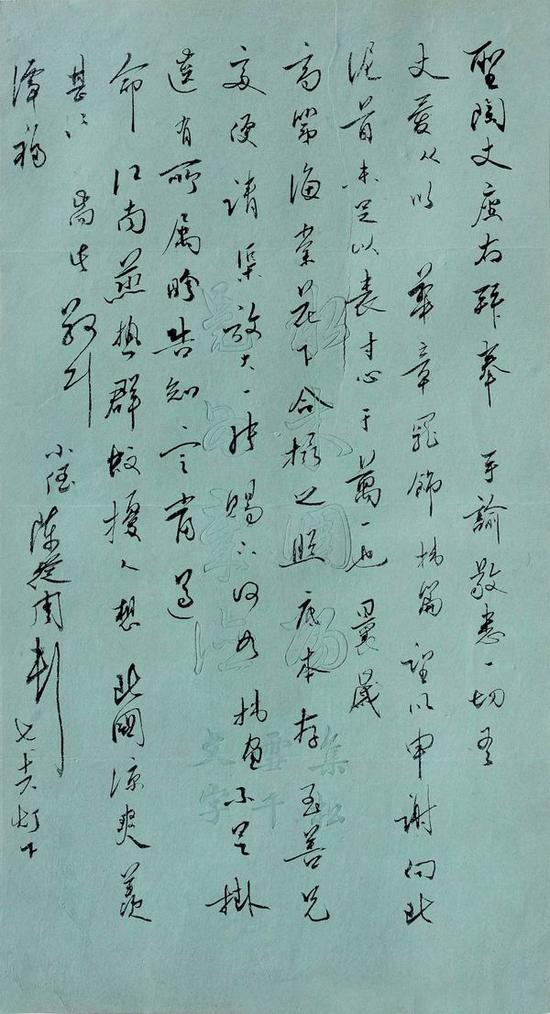 聖陶丈座右 奉 手諭敬悉一切吾
丈 以 華章寵飾拙篇 以申謝向此
泥首未足以表寸心于萬一也 曩歲
高第海棠花下合攝之照底本存至善兄
處便請渠放大一張賜下何如 拙畫不足掛
有所屬盼告知 定當遵
命 江南 熱群蚊擾人想 北國涼爽羨
甚 耑此 敬叩
潭福
小侄陳從周 灯下
集松
雪千
文字